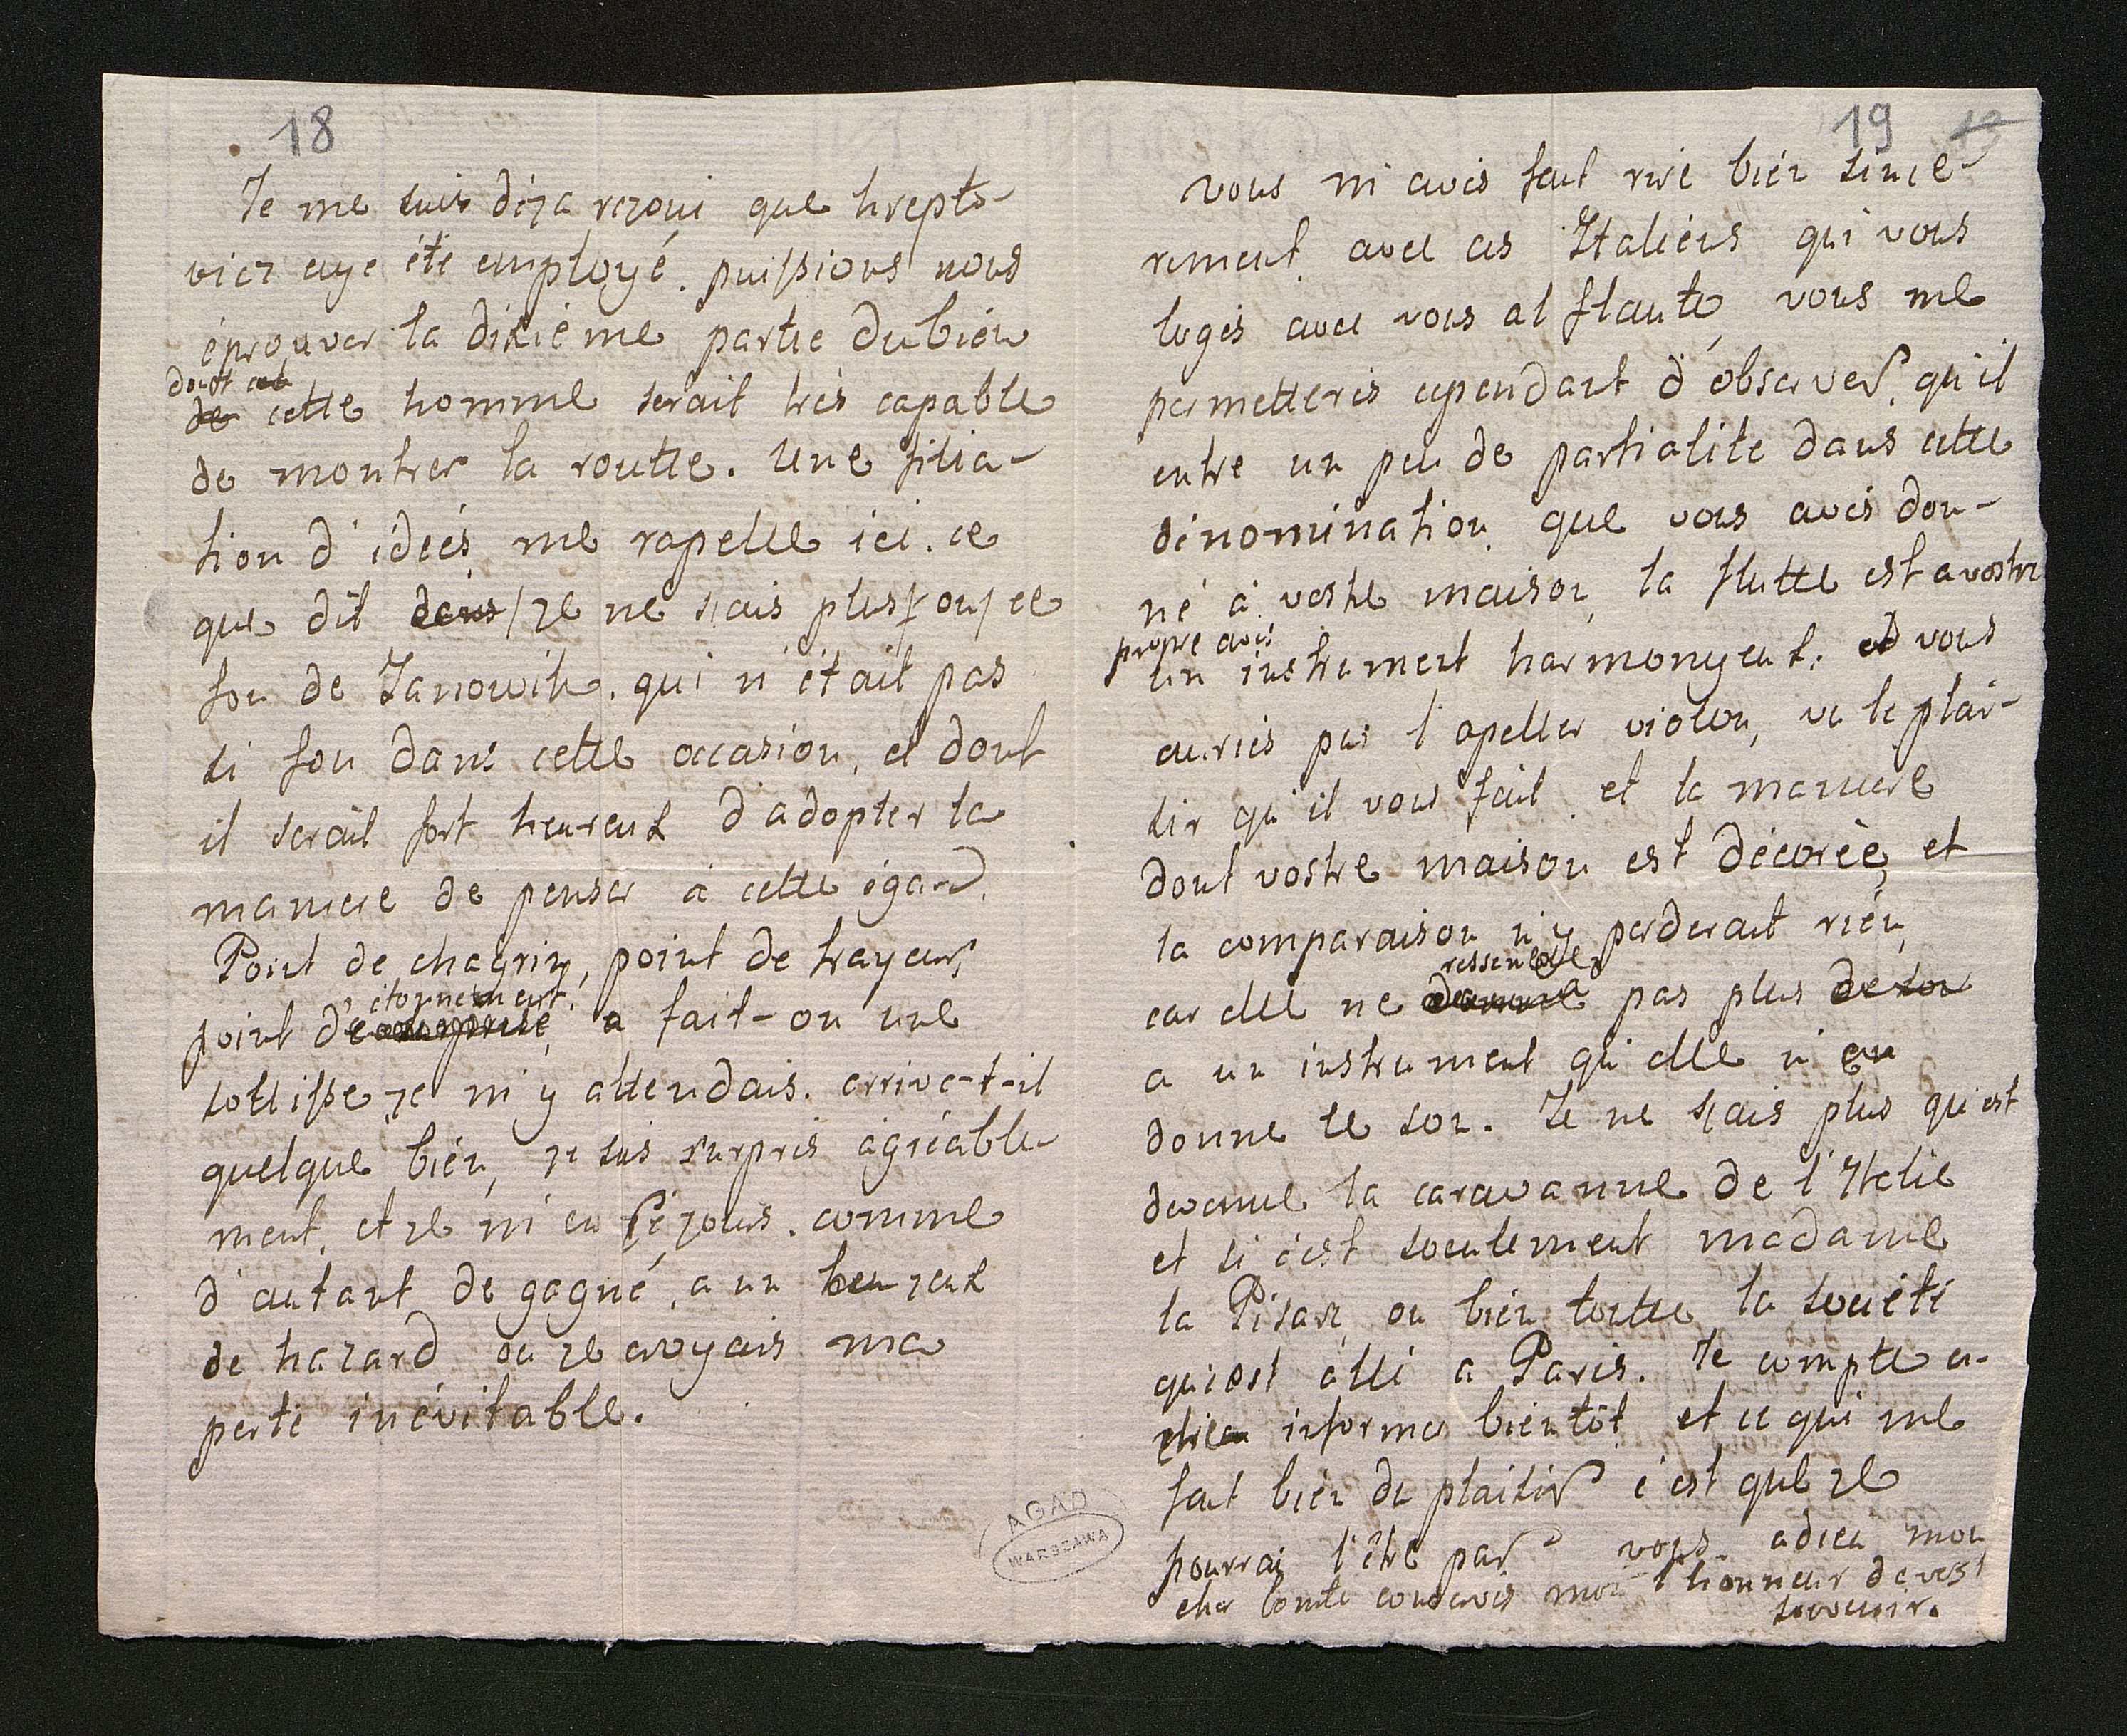 18
Je me suis déja rejoui que hrepto-
vicz aye été employé. puissions nous
éprouver la dixiéme partie du bién
dont
de cette homme serait trés capable
de montrer la routte. Une filia-
tion d'ideés me rapelle ici. ce
que dit dans / je ne sçais plus ou / ce
fou de Janowik. qui n'était pas
si fou dans cette occasion, et dont
il serait fort heureux d'adopter la
maniere de penser à cette égard.
Point de chagrin, point de frayeur,
étonnement,
point d' a fait-on une
sottisse, je m'y attendais. arrive-t-il
quelque bién, je suis surpris agréable-
ment, et je m'en réjouis. comme
d'autant de gagné, a un jeux
de hazard ou je croyais ma
perte inévitable.
19 13
vous m'avés fait rire bién since-
rement, avec ces Italiéns qui vous
logés avec vous al flauto, vous me
permetterés cependant d'observer, qu'il
entre un peu de partialite dans cette
dénomination, que vous avés don-
né à vostre maison, la flutte est a vostre
propre avis
un instrument harmonyeux. et vous
auriés pu l'apeller violon, vu le plai-
sir qu'il vous fait et la maniere
dont vostre maison est décorèe, et
la comparaison n'y perderait rién,
ressemble
car elle ne donne pas plus de son
a un instrument qu'elle n'en
donne le son. Je ne sçais plus qu'est
devenue la caravanne de l'Italie
et si c'est seulement madame
la Pisani, ou bién toutte la societé
qui est allé a Paris. Je compte en
etre informer bientôt et ce qui me
fait bién du plaisir c'est que je
pourrai l'être par vous. adieu mon
cher Comte conservés moi l'honneur de vost
souvenir.
AGAD
WARSZAWA